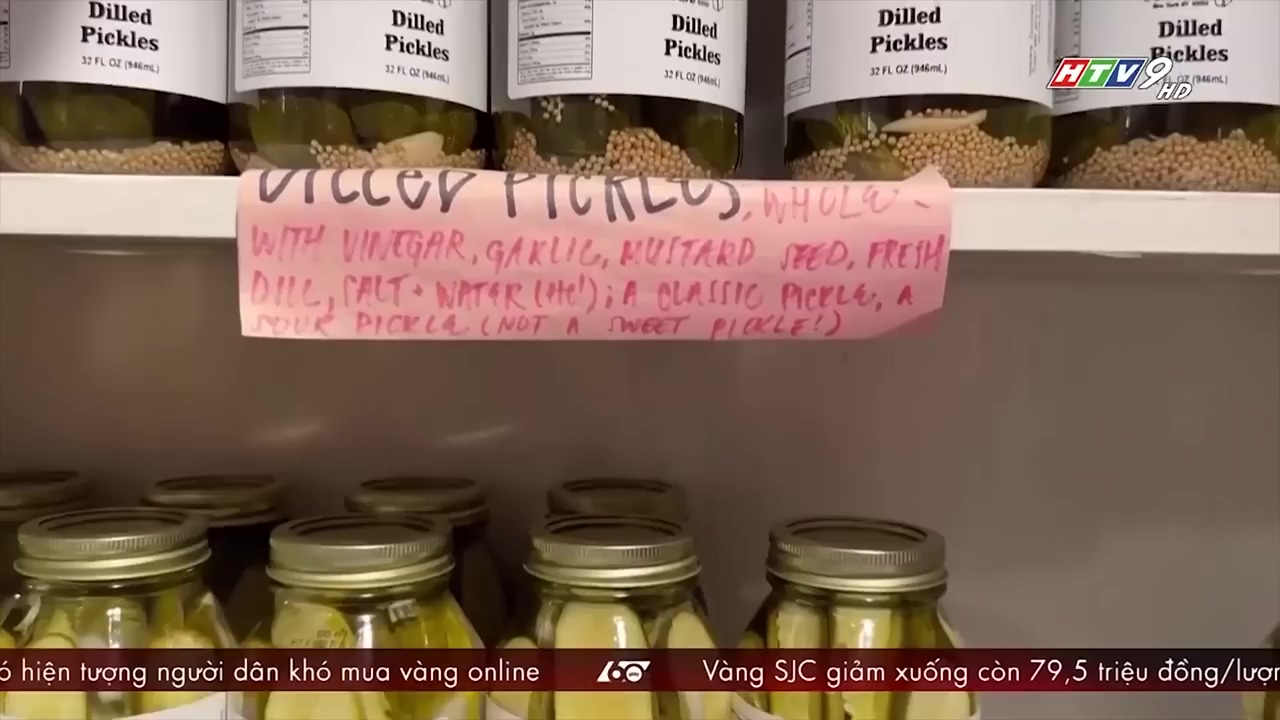 Dilled
Pickles
32 FL OZ (946mL)
Dilled
Pickles
32 FL OZ (946mL)
Dilled
Pickles
32 FL OZ (946mL)
Dilled
Pickles
32 FL OZ (946mL)
Dilled
Pickles
FL OZ (946mL)
HTV9
HD
DILLED PICKLES, WHOLE -
WITH VINEGAR, GARLIC, MUSTARD SEED, FRESH
DILL, SALT + WATER (); A CLASSIC PICKLE, A
SOUR PICKLE (NOT A SWEET PICKLE!)
ó hiện tượng người dân khó mua vàng online
Vàng SJC giảm xuống còn 79,5 triệu đồng/lượn